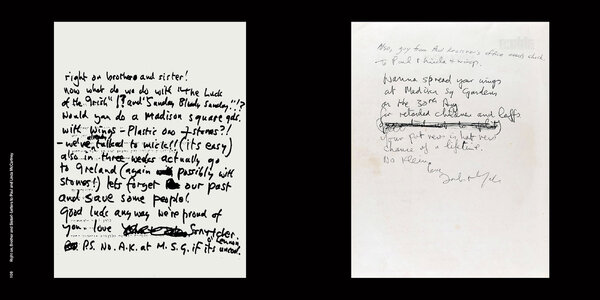 right on brother and sister!
now what do we do with "The Luck
of the Irish"!? and 'Sunday Bloody Sunday'"!?
Would you do a Madison square gdn.
with Wings - Plastic ono + stones?!
- we've talked to mick!! (its easy)
also in three weeks actually go
to Ireland (again possibly with
stones!) lets forget our past
and save some people!
Good luck anyway we're proud of
you. love
P.S. No. A.K. at M.S.G. if its uncool.
Now, guy from Paul Krassner's office needs check
to Paul & Linda
Wanna spread your wings
at Madison Sq Gardens
on the 30th Aug
for retarded children and laffs
your put new is hat new
chance of a lifetime.
No Klein,
love
109
Right on, Brother and Sister!: Letters to Paul and Linda McCartney